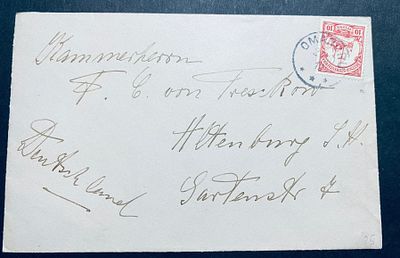 Kammerherrn
F. C. von Treskow
Altenburg S. A.
Gartenstr 7
Deutschland
10 10